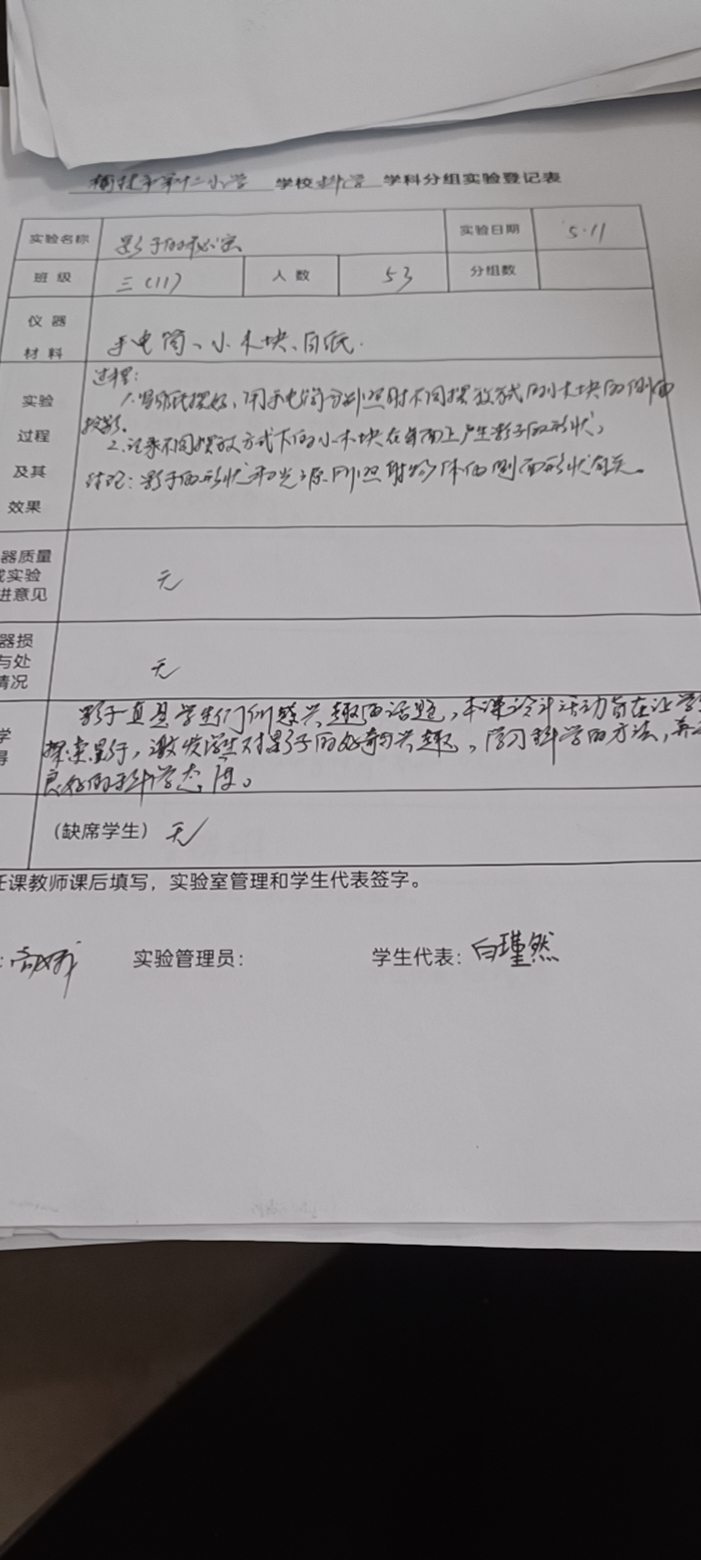 榆林市第十二小学 学校 科学 学科分组实验登记表
实验名称 影子的秘密 实验日期 5.11
班 级 三(11) 人 数 53 分组数
仪 器
材 料 手电筒、小木块、白纸.
过程:
实验 用手电筒分别照射不同摆放方式的小木块的侧面
过程 投影.
及其 2.记录不同摆放方式下的小木块在纸面上产生影子的形状,
效果 结论:影子的形状和光源所照射物体的侧面形状有关。
器质量
实验
进意见 无
器损
与处
情况 无
影子一直是学生们所感兴趣的话题,本课设计活动旨在让学
探索影子,激发学生对影子的好奇与兴趣,学习科学的方法,养
良好的科学态度。
(缺席学生) 无
任课教师课后填写,实验室管理和学生代表签字。
实验管理员: 学生代表: 白瑾然